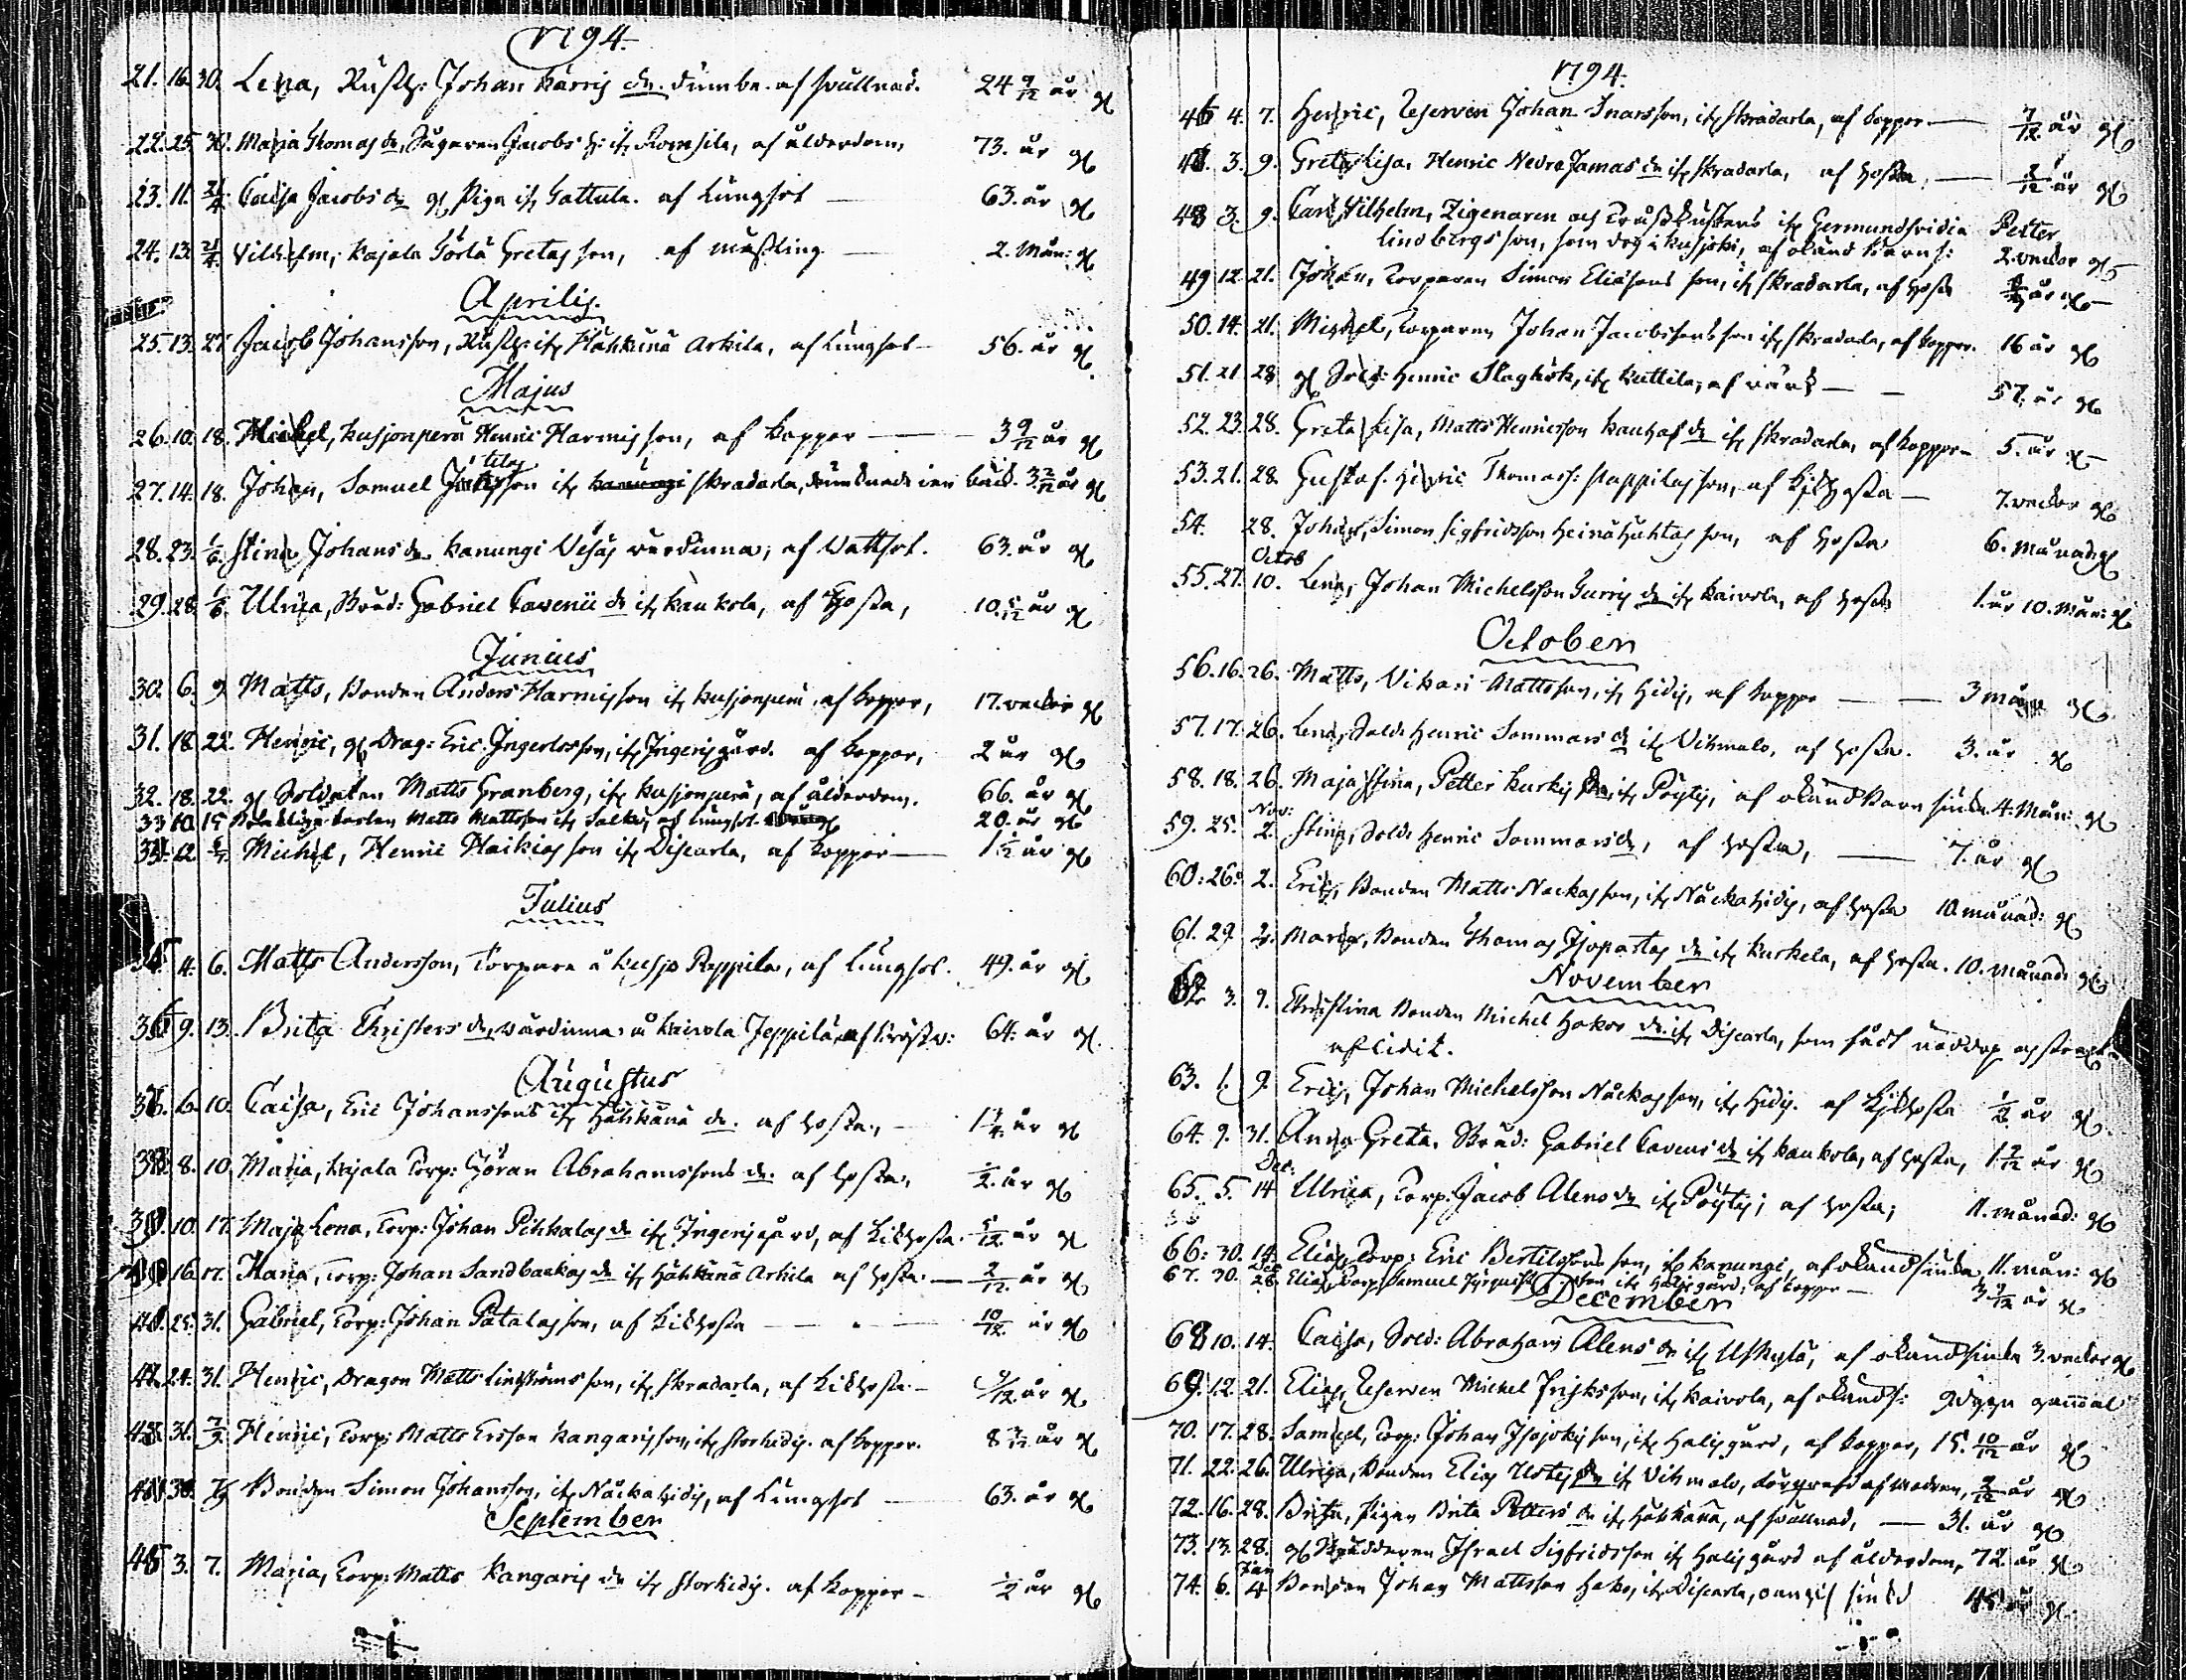 1794.
21. 16. 30. Lena, Rusth: Johan Karris dr. dumbe. af svullnad. 24 9/12 år gl
22. 25. 30. Maria Thomas dr, Jacobs h: if Romsila, af ålderdom, 73. år gl
23. 11. 21/4 Caisa Jacobs dr gl Piga if Gattula. af Lungsot 63. år gl
24. 13. 21/4 Vilhelm, Kajala Görla Gretas son, af mässling 2. Mån: gl
Aprilis.
25. 13. 27 Jacob Johansson, Rusth: if Hähkänä Arkila, af Lungsot 56. år gl
Majus
26. 10. 18. Michel, Kusjonperä Henric Harmis son, af koppor 3 9/12 år gl
27. 14. 18. Johan, Samuel son if Skradarla, 3 2/12 år gl
28. 23. 1/6. Stina Johans dr Kanungi Vesas värdinna, af Vattsot. 63. år gl
29. 28. 1/6. Ulrica, Bråd: Gabriel Cavenii dr if Kaukola, af Hosta, 10. 5/12 år gl
Junius
30. 6. 9. Matts, Bonden Anders Harmis son if Kusjonperä, af koppor, 17. veckor gl
31. 18. 22. Henric, gl Drag: Eric Ingerlosson, if Ingerisgård. af koppor, 2 år gl
32. 18. 22. gl Soldaten Matts Granberg, if Kusjonperä, af ålderdom. 66. år gl
33 10. 15 Matts Mattsson if af Lungsot. 20. år gl
34. 12. Michel, Henric Haikias son if Discarla, af koppor 1 år gl
Julius
35. 4. 6. Matts Andersson, Torpare å Kusjo Peppila, af Lungsot. 49. år gl
36 9. 13. Brita Christers dr, värdinna å Kaivola Jeppilä, 64. år gl.
Augustus
37. 6. 10. Caisa, Eric Johanssons if Hähkänä dr. af hosta, 1 år gl
38. 8. 10 Maria, Kajala Torp: Göran Abrahamssons dr. af hosta, 1/2. år gl
39. 10. 17. Maja Lena, Torp: Johan Pihkalas dr if Ingerisgård, af Kikhosta. 5/12 år gl
40. 16. 17. Maria, Torp: Johan Sandbackas dr if Hähkänä Arkila af hosta. 2/12. år gl
41. 25. 31. Gabriel, Torp: Johan Patalas son, af Kikhosta 10/12. år gl
42. 24. 31. Henric, Dragon Matts Lindströms son, if Skradarla, af Kikhosta. 9/12 år gl
43. 31. 7/9. Henric, Torp: Matts Ersson Kangaris son, if Storhidis. af koppor. 8 år gl
44. 30. 7/9 Bonden Simon Johansson, if Näckahidis, af Lungsot 63. år gl
September
45 3. 7. Maria, Torp: Matts Kangaris dr if Storhidis. af koppor 1/2 år gl
1794.
46 4. 7. Henric, Reserven Johan Inarsson, if Skradarla, af koppor 7/12 år gl
47. 3. 9. Greta Lisa, Henric Nedre Jamas dr if Skradarla, af hosta, 8/12 år gl
48 3. 9. Carl Vilhelm, Zigenaren och if Germundsvidia Petter
Lindbergs son, som dog i Kusjoki, af okänd barns: 2. veckor gl
49 12. 21. Johan, Torparen Simon Eliæsons son, if Skradarla, af hosta år gl
50. 14. 21. Michel, Torparen Johan Jacobssons son if Skradarla, af koppor. 16 år gl
51. 21 28 gl Sold: Henric Slaghök, if Kuttila, af värk 57. år gl
52. 23. 28. Greta Lisa, Matts Henricsson Kauhas dr if Skradarla, af koppor 5. år gl
53. 21. 28. Gustaf. Henric Thomas: Stappilas son, af Kikhosta 7. veckor gl
54. 28. Johan, Simon Sigfridsson Heinähuhtas son, af hosta 6. Månad gl
Octob
55. 27. 10. Lena, Johan Michelsson Gurris dr if Kaivola, af hosta 1. år 10. Mån: gl
October
56. 16. 26. Matts, Vikari Mattsson, if Hidis, af koppor 3 mån gl
57. 17. 26. Lena, Sold: Henric Sommars dr if Vihmalo, af hosta. 3. år gl
58. 18. 26. Maja Stina, Petter Kurkis dr, if Pöytis, af okänd Barn siuka 4. Mån: gl
Nov:
59. 25. 2. Stina, Sold: Henric Sommars dr, af hosta, 7. år gl
60: 26. 2. Eric, Bonden Matts Nackas son, if Näckahidis, af hosta 10. månad: gl
61. 29 2. Maria, Bonden Thomas dr if Kurkela, af hosta. 10. månad: gl
November
62 3. 9. Christina Bonden Michel Hakos dr if Discarla, som fådt nöddop och strax
aflidit.
63. 1. 9. Eric, Johan Michelsson Näckas son, if Hidis. af Kikhosta 1/2 år gl
64. 9. 31. Anna Greta. Bråd: Gabriel Cavens dr if Kaukola, af hosta, 1 år gl
Dec.
65. 5. 14 Ulrica, Torp: Jacob Alens dr if Pöytis; af hosta; 11. månad: gl
66: 30. 14. Elias, Torp: Eric Bertilssons son, if Kanungi, af okänd siuka 11. mån: gl
67. 30. 28. Elias, Torp: Samuel son if Halisgård, af koppor 3 år gl
December
68 10. 14. Caisa, Sold: Abraham Alens dr if Uskylä, af okänd siuka 3. veckor gl
69. 12. 21. Elias, Reserven Michel son, if Kaivola, af okänd s: 9. dygn gammal
70. 17. 28. Samuel, Torp: Johan Isojokis son, if Halisgård, af koppor, 15. 10/12 år gl
71. 22. 26. Ulrica, Bonden Elias dr if Vihmalo, af modren, 2/12 år gl
72. 16. 28. Brita, Pigan Brita Petters dr if Hähkänä, af svullnad, 31. år gl
73. 13. 28. gl Israel Sigfridsson if Halisgård af ålderdom, 72. år gl
Jan
74. 6. 4 Bonden Johan Mattsson Hako, if Discarla, 45 år gl.